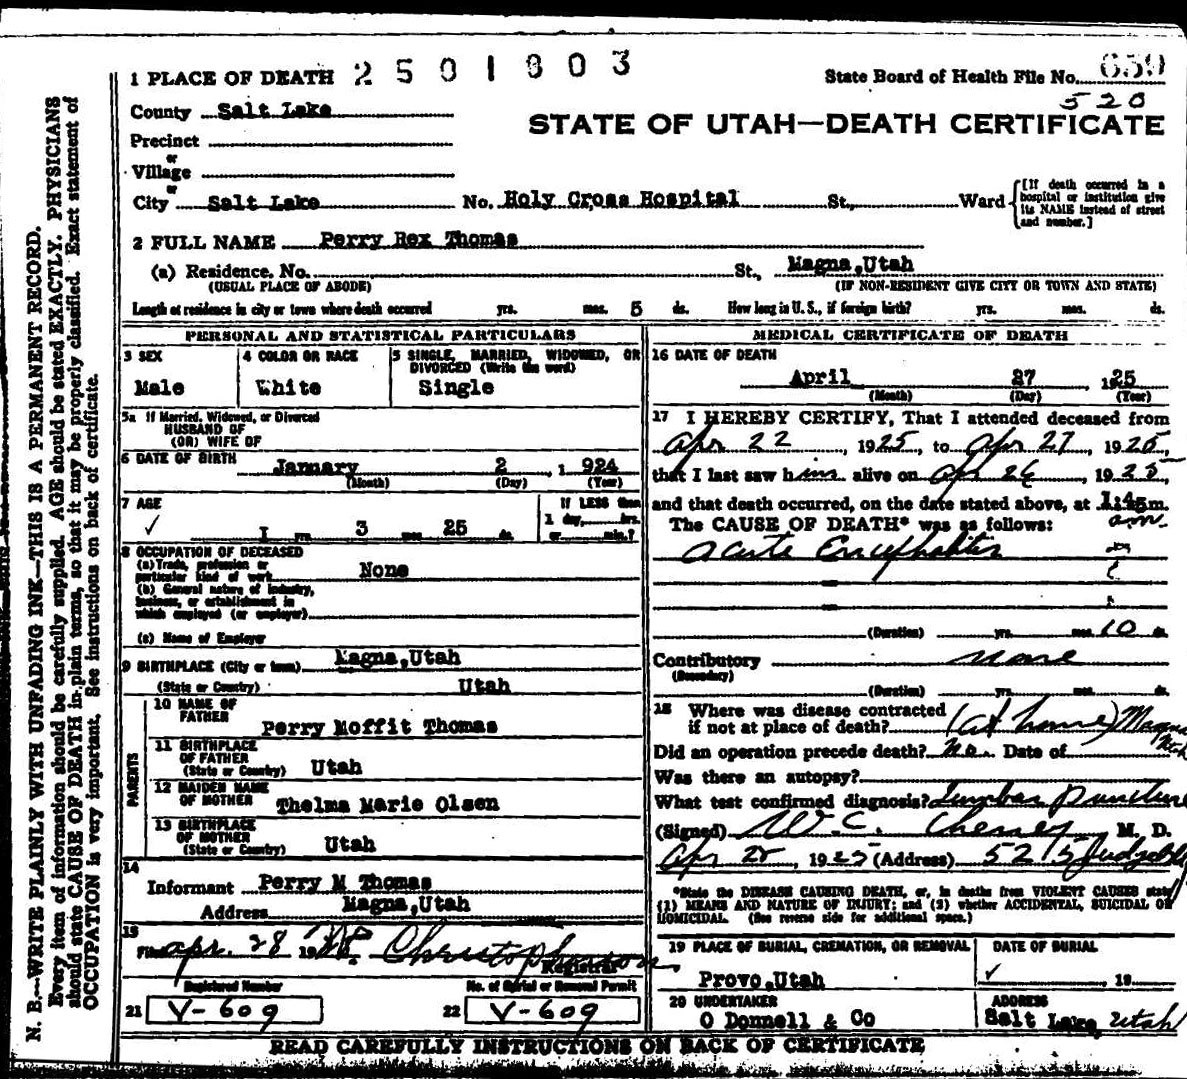 2501803
State Board of Health File No. 659
520
STATE OF UTAH—DEATH CERTIFICATE
1 PLACE OF DEATH
County Salt Lake
Precinct
or
Village
or
City Salt Lake No. Holy Cross Hospital St., Ward
[If death occurred in a
hospital or institution give
its NAME instead of street
and number.]
2 FULL NAME Perry Rex Thomas
(a) Residence. No. St., Magna, Utah
(USUAL PLACE OF ABODE) (IF NON-RESIDENT GIVE CITY OR TOWN AND STATE)
Length of residence in city or town where death occurred yrs. mos. 5 ds. How long in U. S., if foreign birth? yrs. mos. ds.
PERSONAL AND STATISTICAL PARTICULARS
3 SEX
Male
4 COLOR OR RACE
White
5 SINGLE, MARRIED, WIDOWED, OR
DIVORCED (Write the word)
Single
5a If Married, Widowed, or Divorced
HUSBAND OF
(OR) WIFE OF
6 DATE OF BIRTH
January 2, 1924
(Month) (Day) (Year)
7 AGE
✓ 1 yrs. 3 mos. 25 ds.
If LESS than
1 day, hrs.
or min.?
8 OCCUPATION OF DECEASED
(a) Trade, profession or
particular kind of work None
(b) General nature of industry,
business, or establishment in
which employed (or employer)
(c) Name of Employer
9 BIRTHPLACE (City or town) Magna, Utah
(State or Country) Utah
PARENTS
10 NAME OF
FATHER Perry Moffit Thomas
11 BIRTHPLACE
OF FATHER
(State or Country) Utah
12 MAIDEN NAME
OF MOTHER Thelma Marie Olsen
13 BIRTHPLACE
OF MOTHER
(State or Country) Utah
14
Informant Perry M Thomas
Address Magna, Utah
15
Filed Apr. 28 19
Registrar
Registered Number
21 V-609
No. of Burial or Removal Permit
22 V-609
MEDICAL CERTIFICATE OF DEATH
16 DATE OF DEATH
April 27, 1925
(Month) (Day) (Year)
17 I HEREBY CERTIFY, That I attended deceased from
Apr 22, 1925 to Apr 27, 1925,
that I last saw him alive on Apr 26, 1925
and that death occurred, on the date stated above, at 1:45m.
am.
The CAUSE OF DEATH* was as follows:
Acute Encephalitis
(Duration) yrs. mos. 10 ds.
Contributory none
(Secondary)
(Duration) yrs. mos. ds.
18 Where was disease contracted
if not at place of death? (at home) Magna
Utah
Did an operation precede death? No. Date of
Was there an autopsy?
What test confirmed diagnosis? Lumbar puncture
(Signed) W. C. M. D.
Apr 28, 1925 (Address) 525 Judge Bld
*State the DISEASE CAUSING DEATH, or, in deaths from VIOLENT CAUSES state
(1) MEANS AND NATURE OF INJURY; and (2) whether ACCIDENTAL, SUICIDAL OR
HOMICIDAL. (See reverse side for additional space.)
19 PLACE OF BURIAL, CREMATION, OR REMOVAL
Provo, Utah
DATE OF BURIAL
✓ , 19
20 UNDERTAKER
O Donnell & Co
ADDRESS
Salt Lake, Utah
READ CAREFULLY INSTRUCTIONS ON BACK OF CERTIFICATE
N. B.—WRITE PLAINLY WITH UNFADING INK—THIS IS A PERMANENT RECORD.
Every item of information should be carefully supplied. AGE should be stated EXACTLY. PHYSICIANS
should state CAUSE OF DEATH in plain terms, so that it may be properly classified. Exact statement of
OCCUPATION is very important. See instructions on back of certificate.